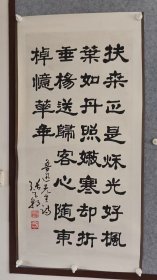 扶桑正是秋光好楓
葉如丹照嫩寒却折
垂楊送歸客心隨東
棹憶華年
魯迅先生詩